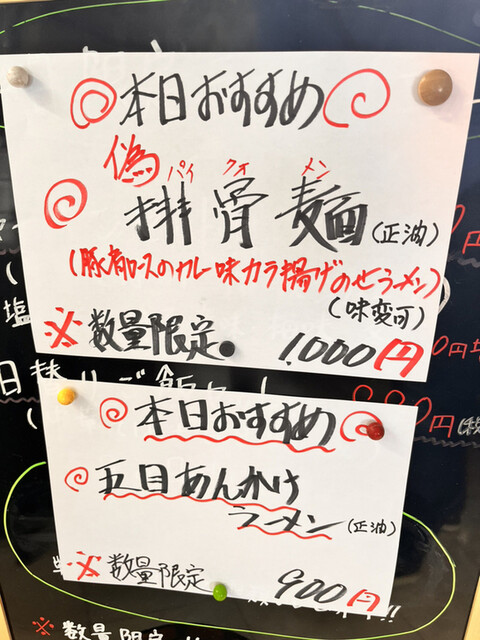 本日おすすめ
偽
パイ クォ メン
排骨麺(正油)
(豚肩ロースのカレー味カラ揚げのせラーメン)
(味変可)
※数量限定 1,000円
本日おすすめ
五目あんかけ
ラーメン(正油)
※数量限定 900円
※数量限定